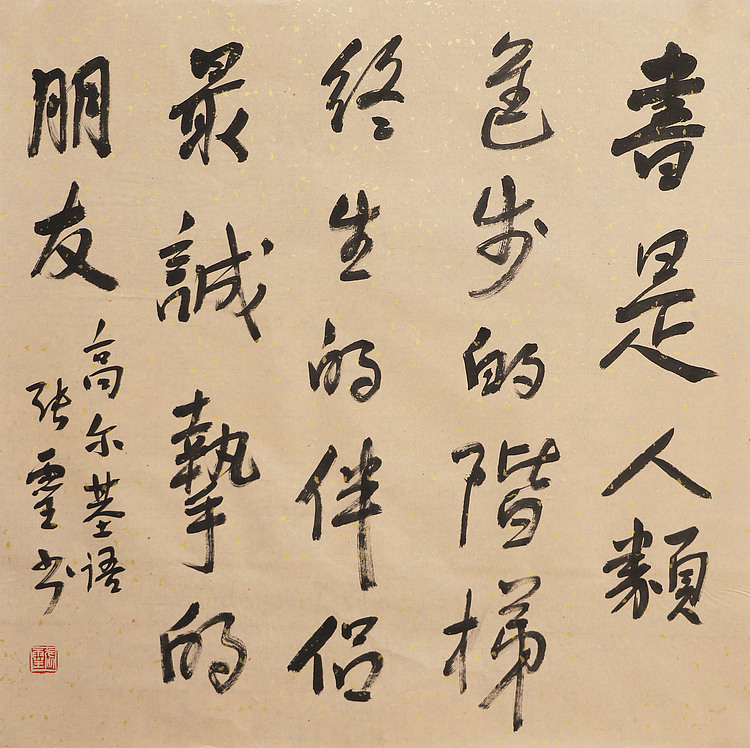 書是人類
進步的階梯
終生的伴侶
最誠摯的
朋友
高尔基语
张书